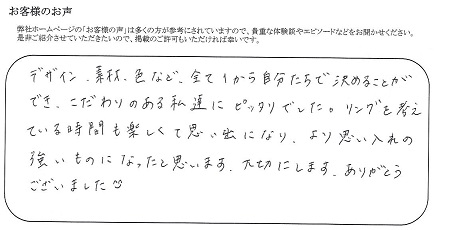 お客様のお声
弊社ホームページの「お客様の声」は多くの方が参考にされていますので、貴重な体験談やエピソードなどをお聞かせください。
是非ご紹介させていただきたいので、掲載のご許可もいただければ幸いです。
デザイン、素材、色など、全て1から自分たちで決めることが
でき、こだわりのある私達にピッタリでした。リングを考え
ている時間も楽しくて思い出になり、より思い入れの
強いものになったと思います。大切にします。ありがとう
ございました